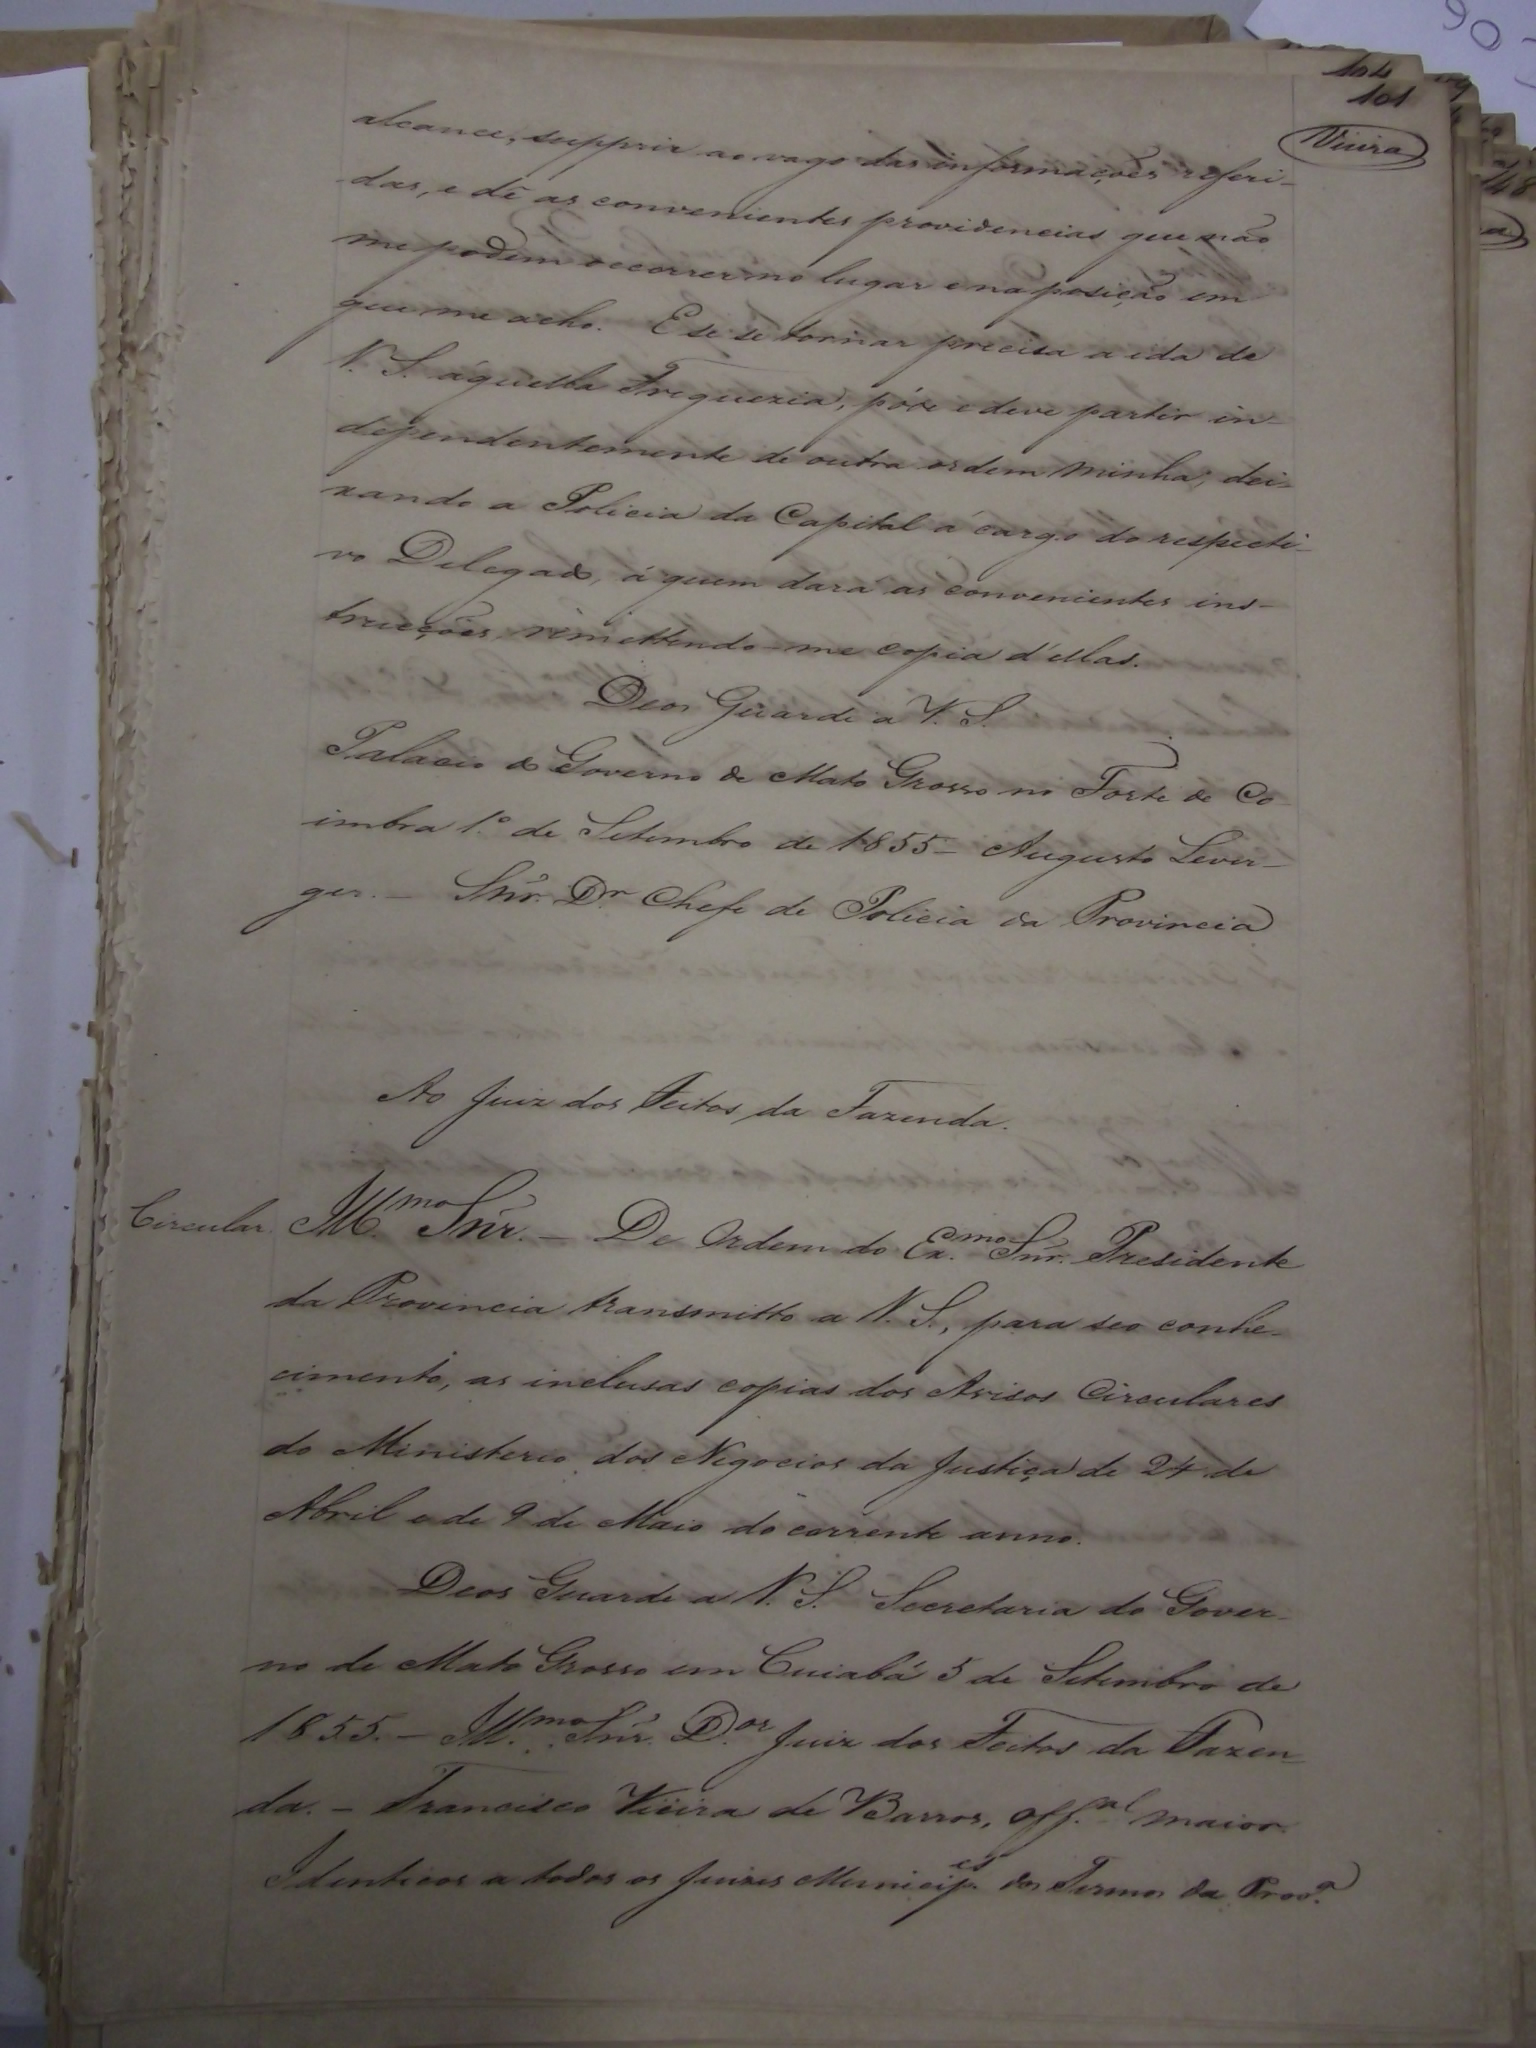 104
101
Vieira
alcance, supprir ao vago das informações referi-
das, e dê as convenientes providencias que não
me podem occorrer no lugar e na posição em
que me acho. E se se tornar precisa a ida de
V. S. áquella Freguezia, póde e deve partir in-
dependentemente de outra ordem minha, dei-
xando a Policia da Capital a cargo do respecti-
vo Delegado, á quem dará as convenientes ins-
trucções, remettendo-me copia d'ellas.
Deos Guarde a V. S.
Palacio do Governo de Mato Grosso no Forte de Co-
imbra 1.º de Setembro de 1855 - Augusto Lever-
ger. - Snr. Dr Chefe de Policia da Provincia
Ao Juiz dos Feitos da Fazenda.
Circular. Ill.mo Snr. - De Ordem do Ex.mo Snr. Presidente
da Provincia transmitto a V. S., para seo conhe-
cimento, as inclusas copias dos Avisos Circulares
do Ministerio dos Negocios da Justiça de 24 de
Abril e de 9 de Maio do corrente anno.
Deos Guarde a V. S. Secretaria do Gover-
no de Mato Grosso em Cuiabá 5 de Setembro de
1855. - Ill.mo Snr. D.or Juiz dos Feitos da Fazen-
da. - Francisco Vieira de Barros, off.al maior.
Identicos a todos os Juizes Municip.es dos Termos da Prov.a